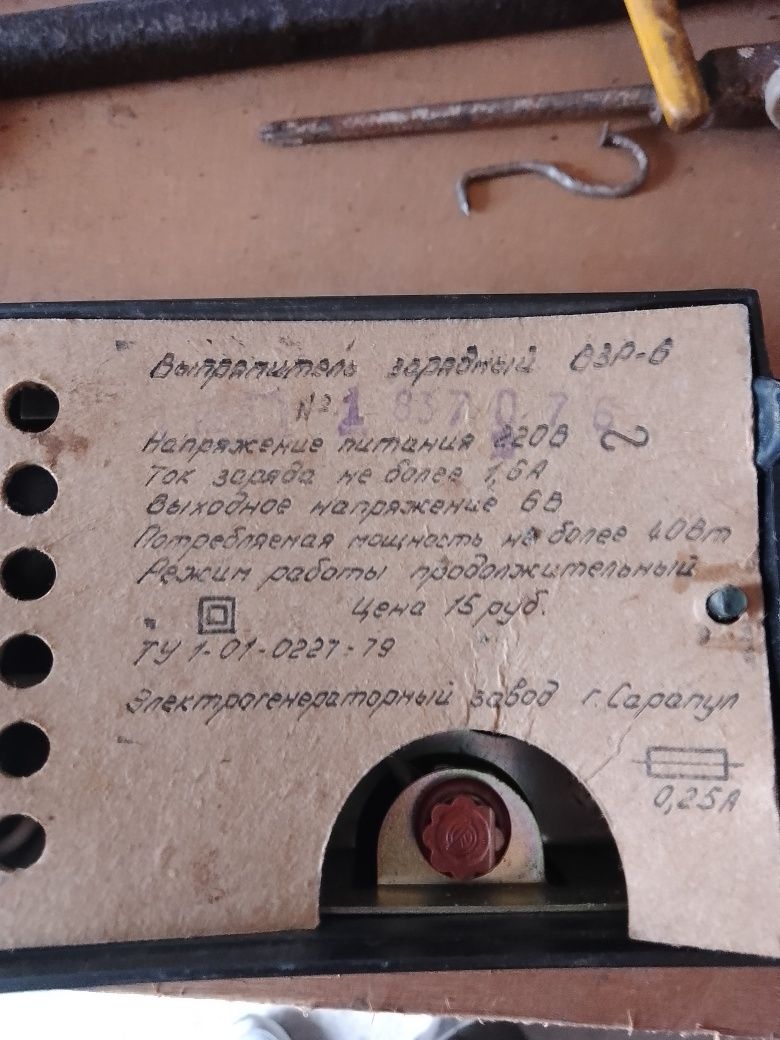 Выпрямитель зарядный ВЗР-6
№ 1 837076
Напряжение питания 220В ~
Ток заряда не более 1,6А
Выходное напряжение 6В
Потребляемая мощность не более 40Вт
Режим работы продолжительный
Цена 15 руб.
ТУ 1-01-0227-79
Электрогенераторный завод г. Сарапул
0,25А